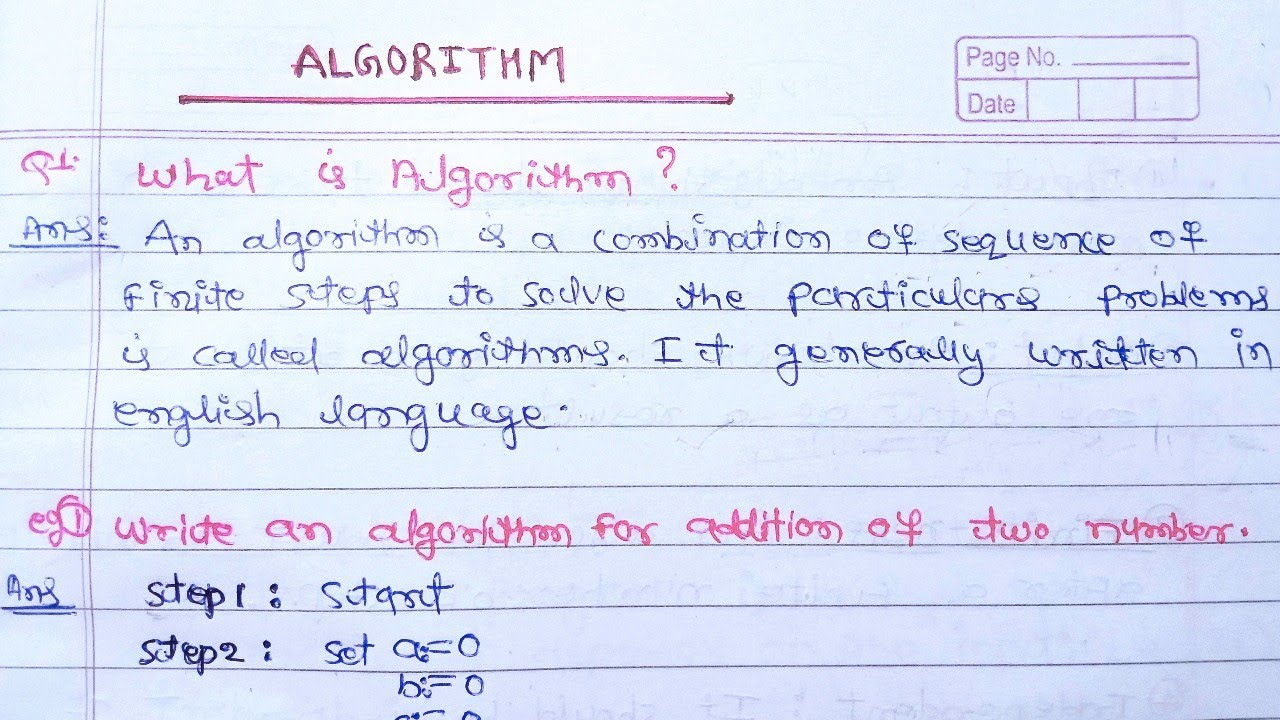 ALGORITHM
Page No.
Date
Q1. What is Algorithm?
Ans: An algorithm is a combination of sequence of
finite steps to solve the particulars problems
is called algorithms. It generally written in
english language.
eg① write an algorithm for addition of two number.
Ans step1: start
step2: set a:=0
b:=0
:=0